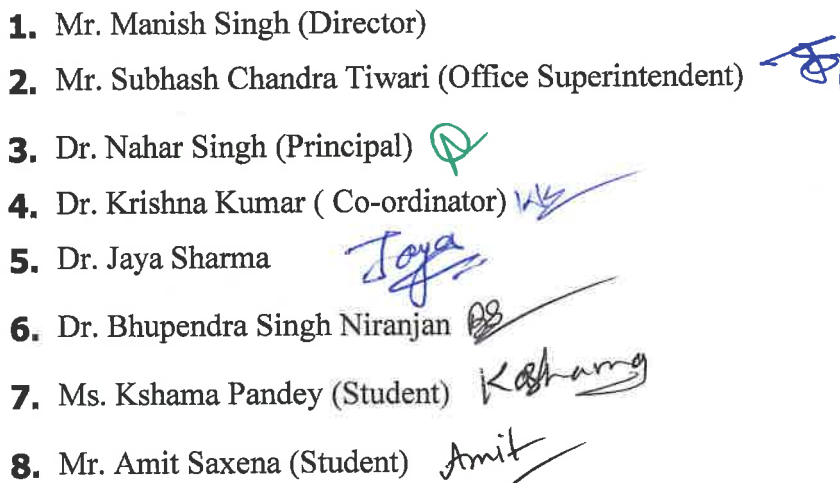 1. Mr. Manish Singh (Director)
2. Mr. Subhash Chandra Tiwari (Office Superintendent)
3. Dr. Nahar Singh (Principal)
4. Dr. Krishna Kumar ( Co-ordinator)
5. Dr. Jaya Sharma Jaya
6. Dr. Bhupendra Singh Niranjan BS
7. Ms. Kshama Pandey (Student) Kshama
8. Mr. Amit Saxena (Student) Amit